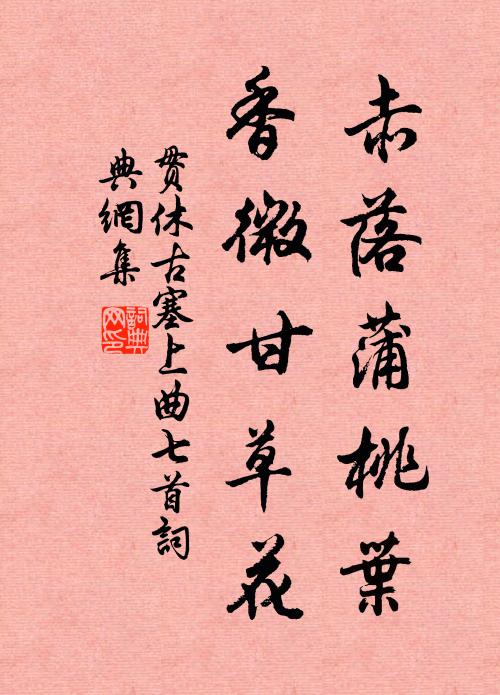 赤落蒲桃葉
香微甘草花
貫休古塞上曲七首詞
典網集
詞典网印